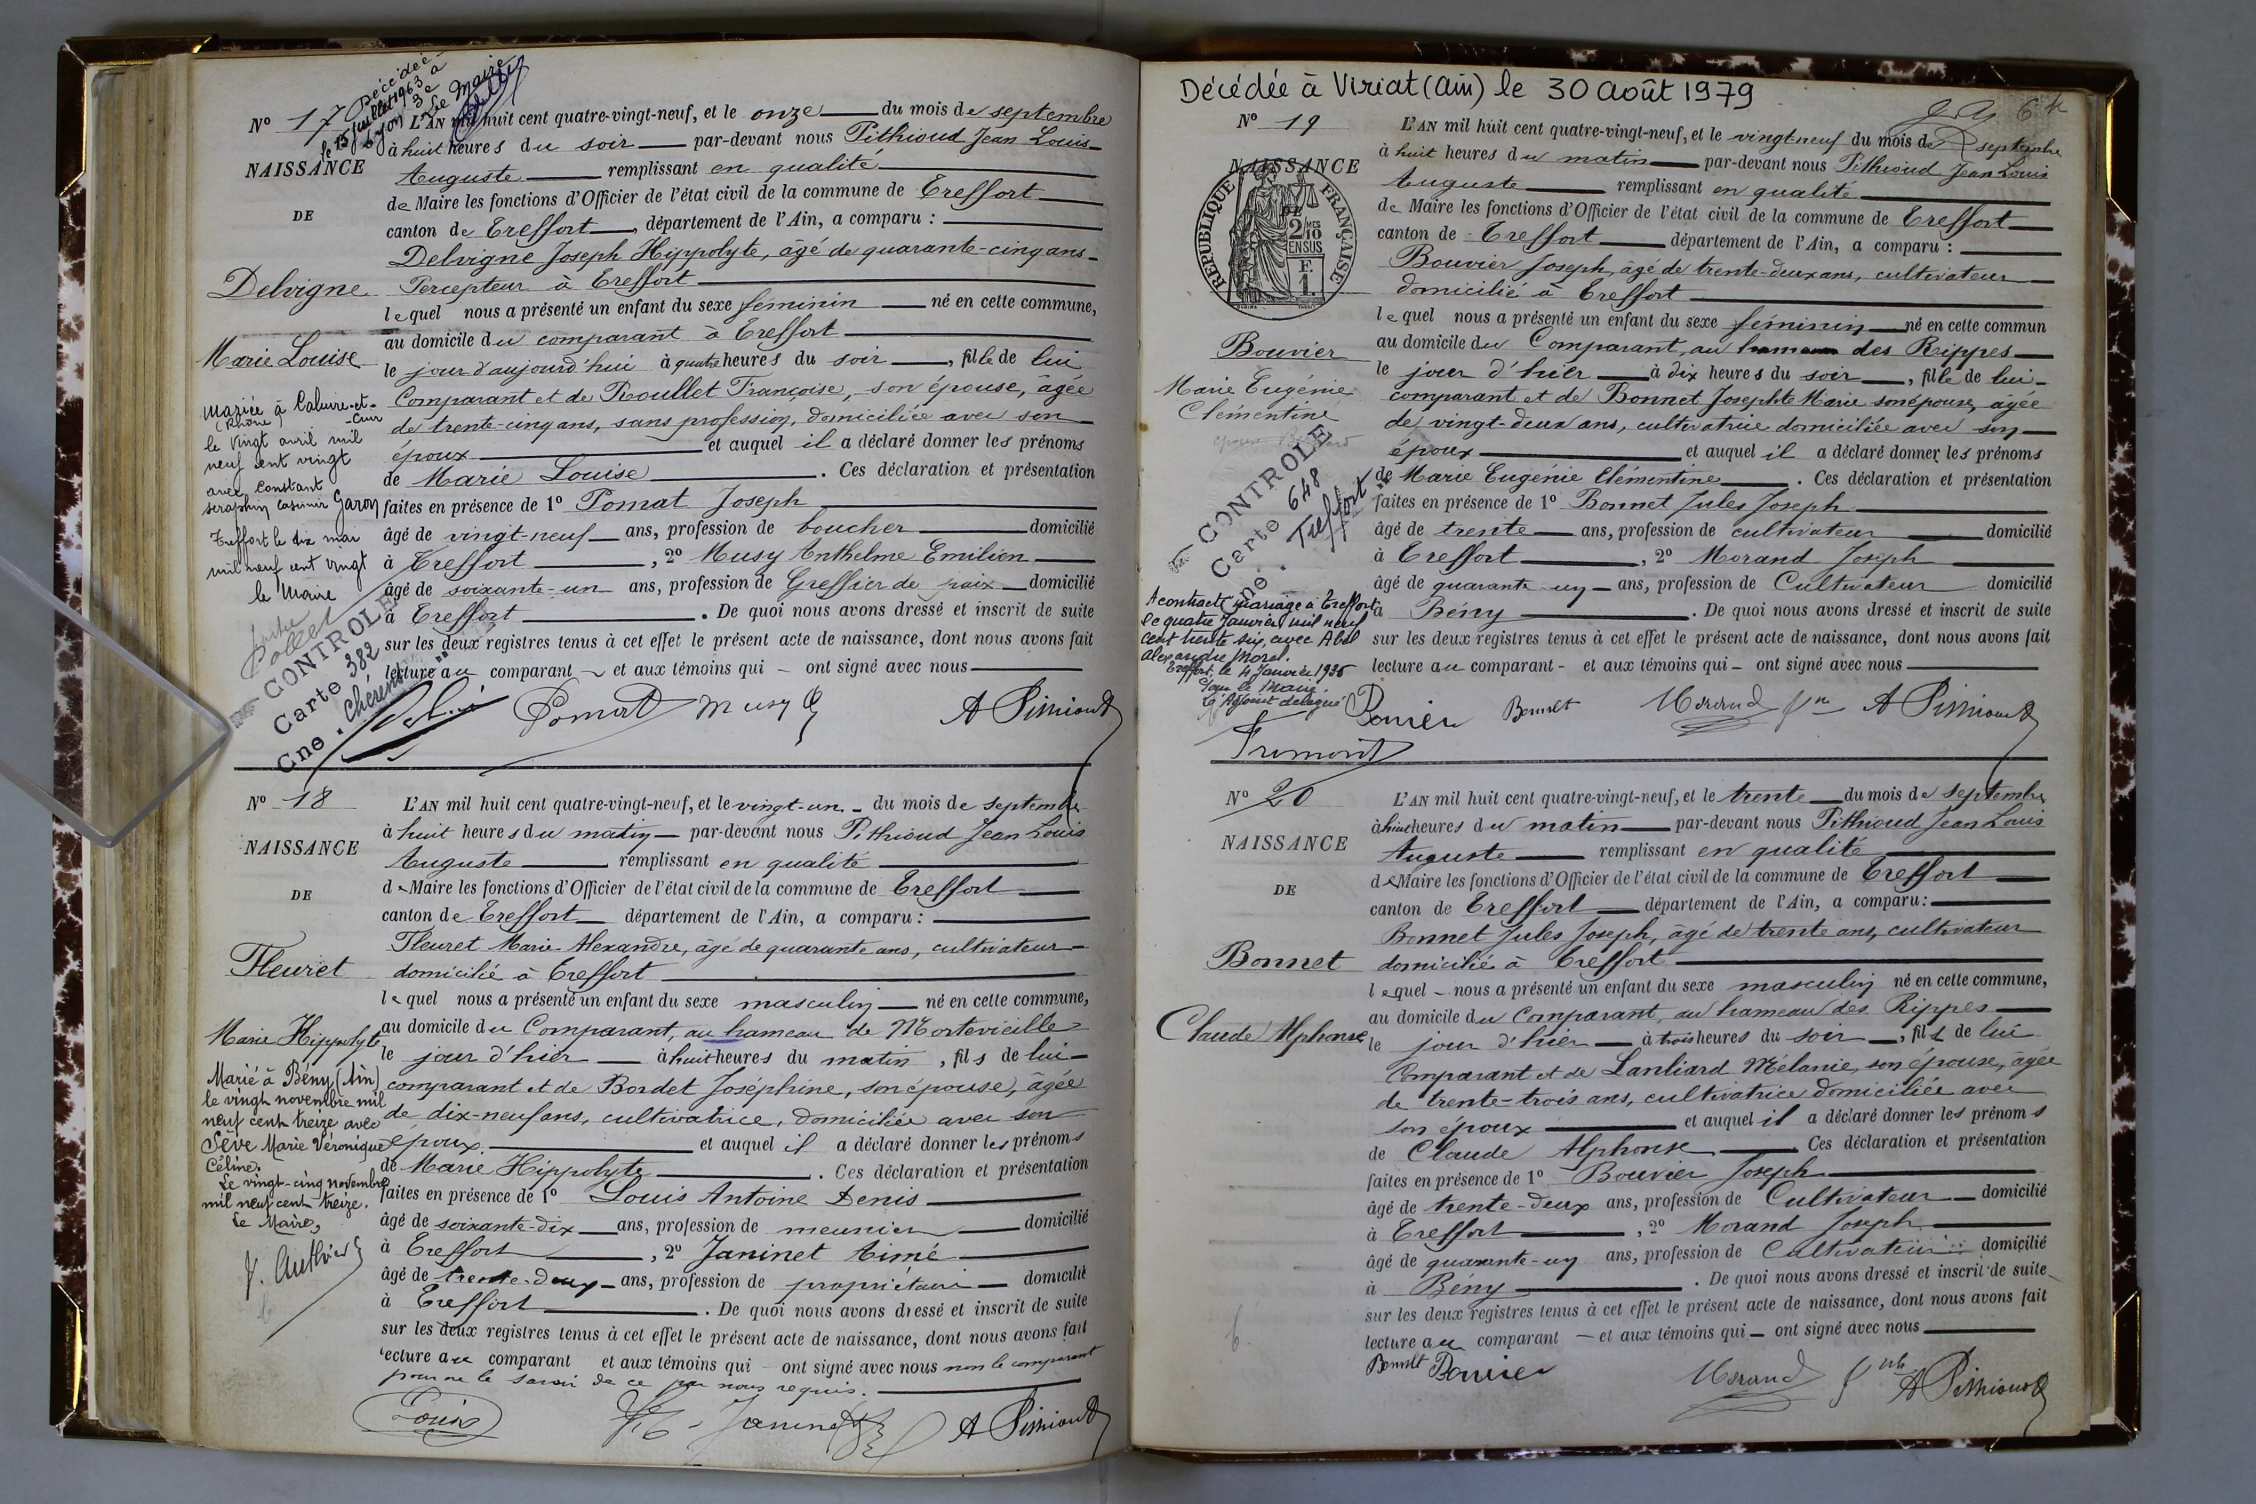 Décédée
le 15 juillet 1963 à
Lyon 3e
Le Maire
Nº 17
NAISSANCE
DE
Delvigne
Marie Louise
Mariée à Caluire-et-
(Rhône) -Cuire
le vingt avril mil
neuf cent vingt
avec Constant
Séraphin Casimir Garon
Treffort le dix mai
mil neuf cent vingt
le Maire
CONTROLE
Carte 382
Cne.
L'AN mil huit cent quatre-vingt-neuf, et le onze du mois de septembre
à huit heures du soir par-devant nous Pithioud Jean Louis
Auguste remplissant en qualité
de Maire les fonctions d'Officier de l'état civil de la commune de Treffort
canton de Treffort, département de l'Ain, a comparu :
Delvigne Joseph Hippolyte, âgé de quarante-cinq ans
Percepteur à Treffort
lequel nous a présenté un enfant du sexe féminin né en cette commune,
au domicile du comparant à Treffort
le jour d'aujourd'hui à quatre heures du soir, fille de lui
Comparant et de Roullet Françoise, son épouse, âgée
de trente-cinq ans, sans profession, domiciliée avec son
époux et auquel il a déclaré donner les prénoms
de Marie Louise. Ces déclaration et présentation
faites en présence de 1º Pomat Joseph
âgé de vingt-neuf ans, profession de boucher domicilié
à Treffort, 2º Musy Anthelme Emilien
âgé de soixante-un ans, profession de Greffier de paix domicilié
à Treffort. De quoi nous avons dressé et inscrit de suite
sur les deux registres tenus à cet effet le présent acte de naissance, dont nous avons fait
lecture au comparant et aux témoins qui ont signé avec nous
Pomat Musy A Pithioud
Nº 18
NAISSANCE
DE
Fleuret
Marie Hippolyte
Marié à Bény (Ain)
le vingt novembre mil
neuf cent treize avec
Sève Marie Véronique
Céline.
Le vingt-cinq novembre
mil neuf cent treize.
Le Maire,
L'AN mil huit cent quatre-vingt-neuf, et le vingt-un du mois de septembre
à huit heures du matin par-devant nous Pithioud Jean Louis
Auguste remplissant en qualité
de Maire les fonctions d'Officier de l'état civil de la commune de Treffort
canton de Treffort département de l'Ain, a comparu :
Fleuret Marie-Alexandre, âgé de quarante ans, cultivateur
domicilié à Treffort
lequel nous a présenté un enfant du sexe masculin né en cette commune,
au domicile du Comparant, au hameau de Mortevieille
le jour d'hier à huit heures du matin, fils de lui
comparant et de Bordet Joséphine, son épouse, âgée
de dix-neuf ans, cultivatrice, domiciliée avec son
époux. et auquel il a déclaré donner les prénoms
de Marie Hippolyte. Ces déclaration et présentation
faites en présence de 1º Louis Antoine Denis
âgé de soixante-dix ans, profession de meunier domicilié
à Treffort, 2º Janinet Aimé
âgé de trente-deux ans, profession de propriétaire domicilié
à Treffort. De quoi nous avons dressé et inscrit de suite
sur les deux registres tenus à cet effet le présent acte de naissance, dont nous avons fait
lecture au comparant et aux témoins qui ont signé avec nous non le comparant
pour ne le savoir de ce par nous requis.
Louis Janinet A Pithioud
Décédée à Viriat (Ain) le 30 août 1979
64
Nº 19
NAISSANCE
DE
REPUBLIQUE FRANÇAISE
2/10
EN SUS
F.
1.
Bouvier
Marie Eugénie
Clémentine
CONTROLE
Carte 648
Cne. Treffort
A contracté mariage à Treffort
le quatre Janvier mil neuf
cent trente six, avec Abel
Alexandre Morel.
Treffort, le 4 Janvier 1936
Pour le Maire,
L'Adjoint délégué
L'AN mil huit cent quatre-vingt-neuf, et le vingt neuf du mois de septembre
à huit heures du matin par-devant nous Pithioud Jean Louis
Auguste remplissant en qualité
de Maire les fonctions d'Officier de l'état civil de la commune de Treffort
canton de Treffort département de l'Ain, a comparu :
Bouvier Joseph, âgé de trente-deux ans, cultivateur
domicilié à Treffort
lequel nous a présenté un enfant du sexe féminin né en cette commun
au domicile du Comparant, au hameau des Rippes
le jour d'hier à dix heures du soir, fille de lui
comparant et de Bonnet Josephte Marie son épouse, âgée
de vingt-deux ans, cultivatrice domiciliée avec son
époux et auquel il a déclaré donner les prénoms
de Marie Eugénie Clémentine. Ces déclaration et présentation
faites en présence de 1º Bonnet Jules Joseph
âgé de trente ans, profession de cultivateur domicilié
à Treffort, 2º Morand Joseph
âgé de quarante-un ans, profession de Cultivateur domicilié
à Bény. De quoi nous avons dressé et inscrit de suite
sur les deux registres tenus à cet effet le présent acte de naissance, dont nous avons fait
lecture au comparant - et aux témoins qui - ont signé avec nous
Bouvier Bonnet Morand A Pithioud
Nº 20
NAISSANCE
DE
Bonnet
Claude Alphonse
L'AN mil huit cent quatre-vingt-neuf, et le trente du mois de septembre
à huit heures du matin par-devant nous Pithioud Jean Louis
Auguste remplissant en qualité
de Maire les fonctions d'Officier de l'état civil de la commune de Treffort
canton de Treffort département de l'Ain, a comparu :
Bonnet Jules Joseph, âgé de trente ans, cultivateur
domicilié à Treffort
lequel - nous a présenté un enfant du sexe masculin né en cette commune,
au domicile du Comparant, au hameau des Rippes
le jour d'hier à trois heures du soir, fils de lui
Comparant et de Lanliard Mélanie, son épouse, âgée
de trente-trois ans, cultivatrice domiciliée avec
son époux et auquel il a déclaré donner les prénoms
de Claude Alphonse Ces déclaration et présentation
faites en présence de 1º Bouvier Joseph
âgé de trente-deux ans, profession de Cultivateur domicilié
à Treffort, 2º Morand Joseph
âgé de quarante-un ans, profession de Cultivateur domicilié
à Bény. De quoi nous avons dressé et inscrit de suite
sur les deux registres tenus à cet effet le présent acte de naissance, dont nous avons fait
lecture au comparant - et aux témoins qui - ont signé avec nous
Bonnet Bouvier Morand A Pithioud